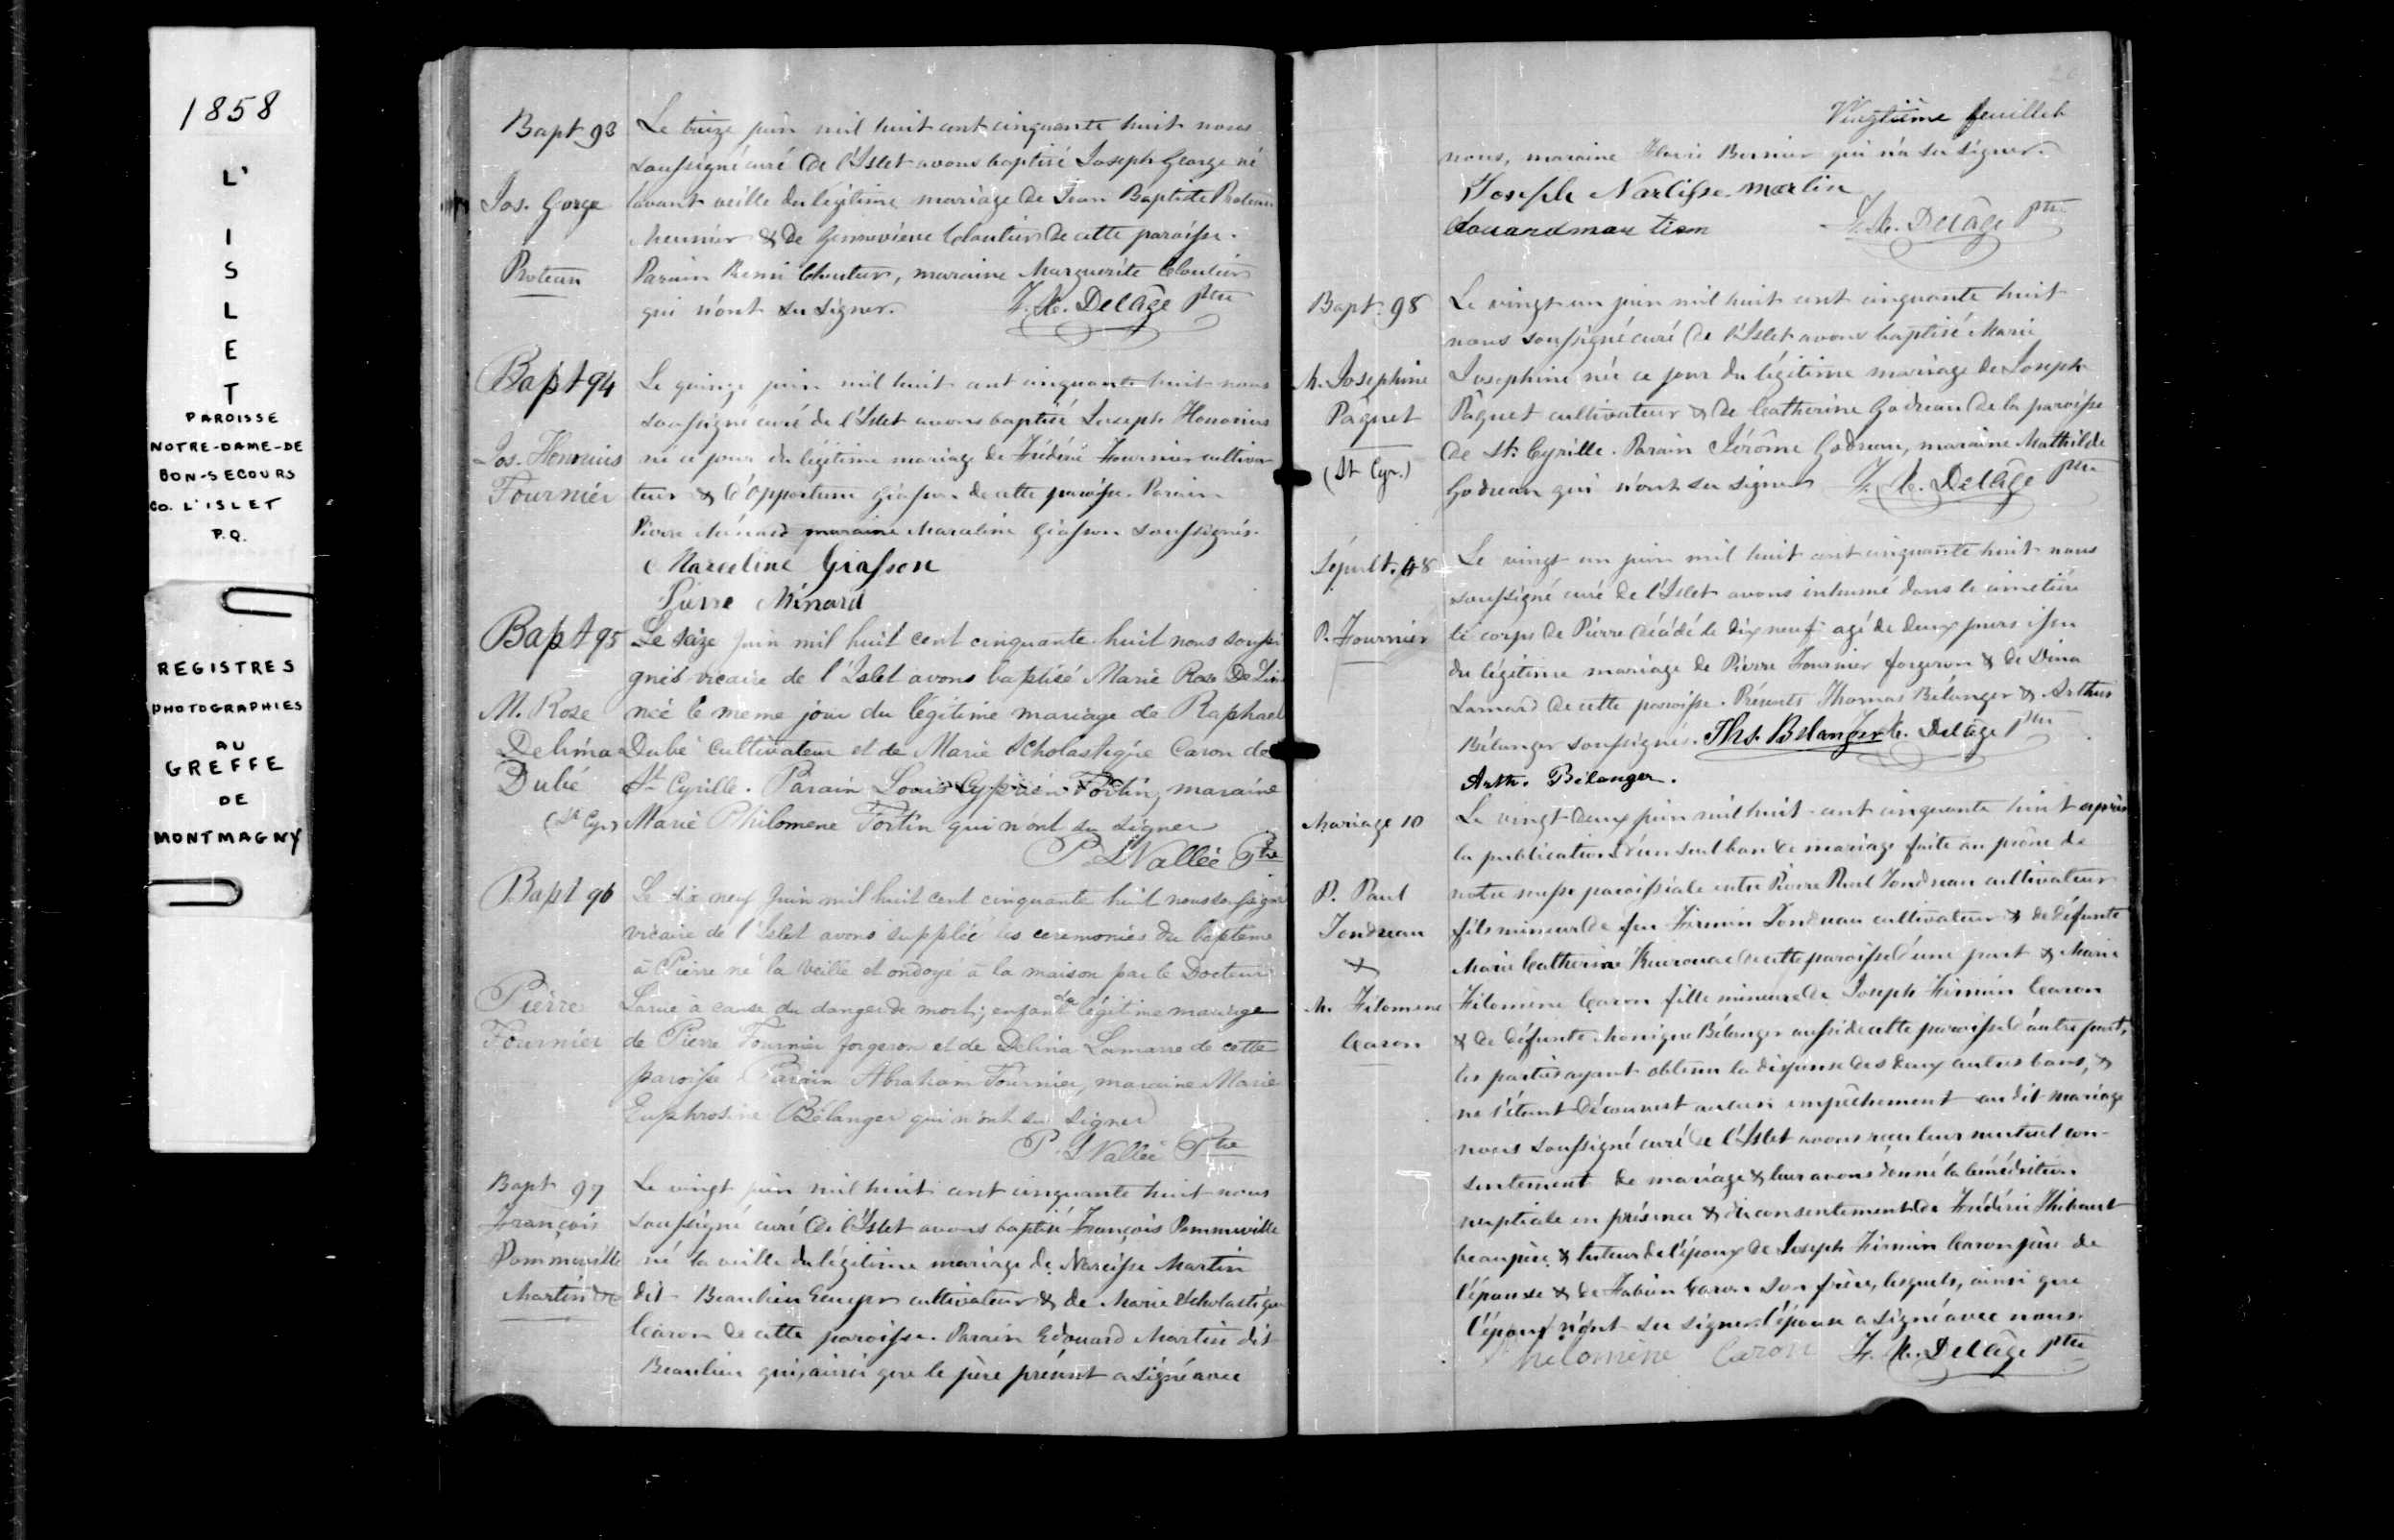 1858
L'
I
S
L
E
T
PAROISSE
NOTRE-DAME-DE
BON-SECOURS
Co. L'ISLET
P.Q.
REGISTRES
PHOTOGRAPHIES
AU
GREFFE
DE
MONTMAGNY
Bapt 93
Jos. George
Proteau
Le treize juin mil huit cent cinquante huit nous
soussigné curé de l'Islet avons baptisé Joseph George né
l'avant veille du légitime mariage de Jean Baptiste Proteau
Meunier & de Genneviève Cloutier de cette paroisse.
Parain Remi Cloutier, maraine Marguerite Cloutier
qui n'ont su signer. F. X. Delâge Ptre
Bapt 94
Jos. Honorius
Fournier
Le quinze juin mil huit cent cinquante huit nous
soussigné curé de l'Islet avons baptisé Joseph Honorius
né ce jour du légitime mariage de Frédéric Fournier cultiva-
teur & d'Opportune Giasson de cette paroisse. Parain
Pierre Ménard maraine Marceline Giasson soussignés.
Marceline Giasson
Pierre Ménard
Bapt 95
M. Rose
Delima
Dubé
(St Cyr)
Le seize juin mil huit cent cinquante huit nous soussi
gnés vicaire de l'Islet avons baptisé Marie Rose De Lim
née le meme jour du légitime mariage de Raphael
Dubé Cultivateur et de Marie Scholastique Caron de
St Cyrille. Parain Louis Cyprien Fortin, maraine
Marie Philomene Fortin qui n'ont su signer
P. L Vallée Ptre
Bapt 96
Pierre
Fournier
Le dix neuf Juin mil huit cent cinquante huit nous soussigné
vicaire de l'Islet avons supplée les ceremonies du baptême
à Pierre né la veille et ondoyé à la maison par le Docteur
Larue à cause du danger de mort; enfant du légitime mariage
de Pierre Fournier forgeron et de Delina Lamarre de cette
paroisse Parain Abraham Fournier, maraine Marie
Euphrosine Bélanger qui n'ont su signer
P. L Vallée Ptre
Bapt 97
François
Pommerville
Martin
Le vingt juin mil huit cent cinquante huit nous
soussigné curé de l'Islet avons baptisé François Pommerville
né la veille du légitime mariage de Narcisse Martin
dit Beaulieu cultivateur & de Marie Scholastique
Caron de cette paroisse. Parain Edouard Martin dit
Beaulieu qui, ainsi que le père présent a signé avec
Vingtième feuillet
nous, maraine Bernier qui n'a su signer.
Joseph Narlisse martin
F. X. Delâge Ptre
Bapt. 98
M. Josephine
Pâquet
(St Cyr.)
Le vingt un juin mil huit cent cinquante huit
nous soussigné curé de l'Islet avons baptisé Marie
Josephine née ce jour du légitime mariage de Joseph
Pâquet cultivateur & de Catherine Godreau de la paroisse
de St. Cyrille. Parain Jérôme Godreau, maraine Mathilde
Godreau qui n'ont su signer F. X. Delâge Ptre
Sépult. 48
P. Fournier
Le vingt un juin mil huit cent cinquante huit nous
soussigné curé de l'Islet avons inhumé dans le cimetière
le corps de Pierre décédé le dix neuf agé de deux jours issu
du légitime mariage de Pierre Fournier forgeron & de Dina
Lamard de cette paroisse. Présents Thomas Bélanger & Arthur
Bélanger soussignés. Ths. Belanger F. X. Delâge Ptre
Arth. Bélanger.
Mariage 10
P. Paul
Tondreau
&
M. Filomene
Caron
Le vingt-deux juin mil huit-cent cinquante huit après
la publication d'un seul ban de mariage faite au prône de
notre messe paroissiale entre Pierre Paul Tondreau cultivateur
fils mineur de feu Firmin Tondreau cultivateur & de défunte
Marie Catherine Kuerouac de cette paroisse d'une part & Marie
Filomène Caron fille mineure de Joseph Firmin Caron
& de défunte Monique Bélanger aussi de cette paroisse d'autre part,
les parties ayant obtenu la dispense des deux autres bans, &
ne s'étant découvert aucun empêchement au dit mariage
nous soussigné curé de l'Islet avons reçu leur mutuel con-
sentement de mariage & leur avons donné la bénédiction
nuptiale en présence & du consentement de Frédéric Thibault
beaupère & tuteur de l'époux de Joseph Firmin Caron père de
l'épouse & de Fabien Caron son frère, lesquels, ainsi que
l'époux n'ont su signer l'épouse a signé avec nous.
Philomène Caron F. X. Delâge Ptre